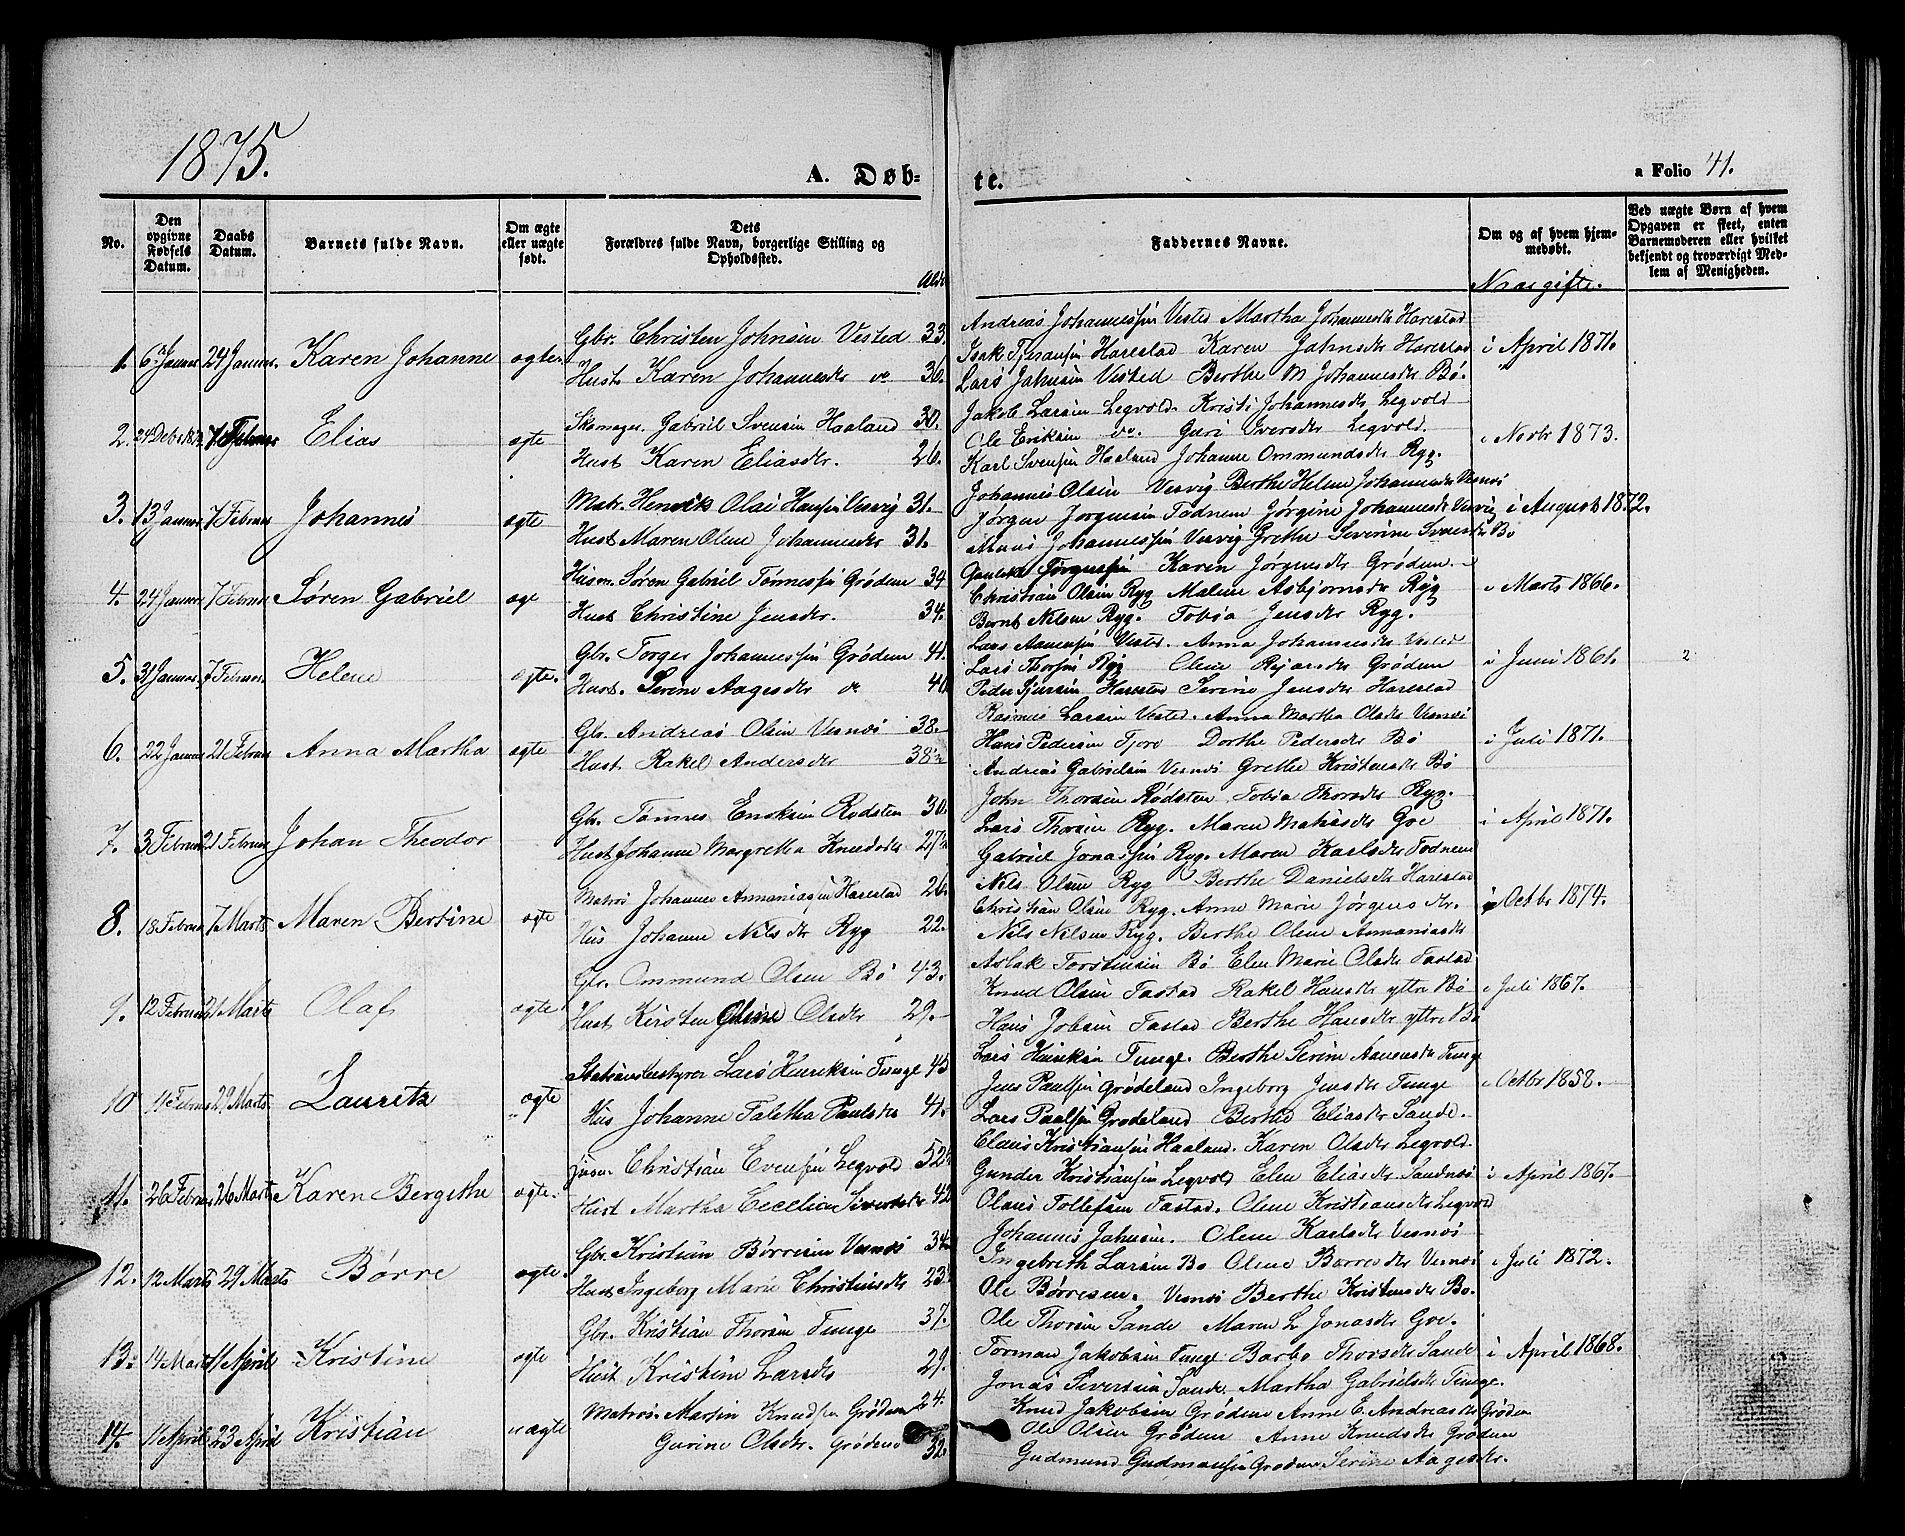 1875.
A. Døb-
te.
a Folio 41.
No.
Den opgivne Fødsels Datum.
Daabs Datum.
Barnets fulde Navn.
Om ægte eller uægte født.
Dets Forældres fulde Navn, borgerlige Stilling og Opholdssted.
Faddernes Navne.
Om og af hvem hjemmedøbt.
Ved uægte Børn af hvem Opgaven er skeet, enten Barnemoderen eller hvilket bekjendt og troværdigt Medlem af Menigheden.
Naar gifte.
Andreas Johannessen Vested Martha Johannesdr Harestad
1. 6 Januar 24 Januar Karen Johanne ægte Gbr. Christen Johnsen Vested 33.
Hust Karen Johannesdr do 30.
Isak Harestad Karen Jahnsdr Harestad i April 1871.
Lars Jahnsen Vested Berthe M Johannesdr Bø.
2. 7 Februar Elias ægte Skomager Gabriel Svensen Haaland 30.
Hust Karen Eliasdr. 26.
Jakob Larsen Legvold. Kristi Johannesdr Legvold
Ole Eriksen do. Guri Iversdr Legvold. i Novbr 1873.
Karl Svensen Haaland Johanne Ommundsdr Ryg.
3. 13 Januar 7 Februar Johannes ægte Matr. Henrik Olai Hansen Vesvig 31.
Hust Maren Olene Johannesdr 31.
Johannes Olsen Vesvig Berthe Helene Johannesdr
Jørgen Jørgensen Todnem Jørgine Johannesdr Vesvig i August 1872.
Johannessen Vesvig Grethe Severine Bø
4. 24 Januar 7 Februar Søren Gabriel ægte Husm. Søren Gabriel Tønnessen Grødem 34
Hust Christine Jensdr. 34.
Jørgensen Karen Jørgensdr Grødem.
Christian Olsen Ryg Malene Asbjornsdr Ryg i Marts 1866.
Bernt Nilsen Ryg. Tobia Jensdr Ryg.
5. 31 Januar 7 Februar Helene ægte. Gbr. Torger Johannessen Grødem 41.
Hust. Serine Aagesdr do 40
Lars Vested. Anna Johannesdr Vested
Lars Thorsen Ryg Olene Grødem i Juni 1861. 2
Peder Harestad Serine Jensdr Harestad
6. 22 Januar 21 Februar Anna Martha ægte Gbr. Andreas Olsen Vesnøs 38.
Hust Rakel Andersdr 38½
Rasmus Larsen Vested. Anna Martha Olsdr Vesnøs
Hans Pedersen Tjore Dorthe Pedersdr Bø i Juli 1871.
Andreas Gabrielsen Vesnøs Grethe Kristensdr Bø
7. 3 Februar 21 Februar Johan Theodor Gbr. Tønnes Eriksen Rødsten 30.
Hust Johanne Margretha Knudsdr 27½
John Thorsen Rødsten. Tobia Thorsdr Ryg.
Lars Thorsen Ryg. Maren Goe i April 1871.
Gabriel Jonassen Ryg. Maren Karlsdr Todnem
8. 18 Februar 7 Marts Maren Bertine ægte Matros Johannes Annaniassen Harestad 26.
Hus Johanne Nilsdr Ryg 22.
Nils Olsen Ryg Berthe Danielsdr Harestad
Christian Olsen Ryg. Anne Marie Jørgensdr. i Octbr 1874.
Nils Nilsen Ryg. Berthe Olene Annaniasdr
9. 12 Februar 21 Marts Olaf ægte Gbr. Ommund Olsen Bø 43.
Hust Kirsten Olene Olsdr 29.
Aslak Torstensen Bø Elen Marie Olsdr Tastad
Knud Olsen Tastad Rakel Hansdr ytre Bø i Juli 1867.
Hans Jobsen Tastad Berthe Hansdr ytre Bø
10 11 Februar 29 Marts Lauritz ægte Stationsbestyrer Lars Henriksen Tunge 45
Hus Johanne Taletha Paulsdr 41.
Lars Henriksen Tunge. Berthe Serine Tunge
Jens Paulsen Grødeland Ingeborg Jensdr Tunge i Octbr 1858.
Lars Paulsen Grødeland Berthe Eliasdr Sande.
11. 26 Februar 26 Marts Karen Bergithe ægte. Christian Evensen Legvold 52½
Hust Martha Cecelia Sivertsdr 42
Claus Kristiansen Haaland. Karen Olsdr Legvold.
Gunder Kristiansen Legvold Elen Eliasdr Sandnøs i April 1867.
Olaus Tollefsen Tastad. Olene Kristiansdr Legvold
12. 12 Marts 29 Marts Børre ægte. Gbr. Kristian Børresen Vesnøs 34
Hust Ingeborg Marie Christensdr 23½
Johannes Jahnsen. Olene Karlsdr Vesnøs
Ingebreth Larsen Bø Olene Børresdr Vesnøs i Juli 1872.
Ole Børresen. Vesnøs Berthe Kristensdr Bø.
13. 14 Marts 11 April Kristine ægte Gbr. Kristian Thorsen Tunge 37.
Hust Kristine Larsdr 29.
Ole Thorsen Sande Maren L Jonasdr Goe.
Torman Jakobsen Tunge Barbo Thorsdr Sande i April 1868.
Jonas Sivertsen Sande. Martha Gabrielsdr Tunge.
14. 11 April 23 April Kristian uægte Matros. Martin Knudsen Grødem 24.
Gurine Olsdr. Grødem 32.
Knud Jakobsen Grødem Anne E. Andreasdr Grødem
Ole Olsen Grødem Anne Knudsdr Grødem
Gudmund Gudmansen Grødem Serine Aagesdr.